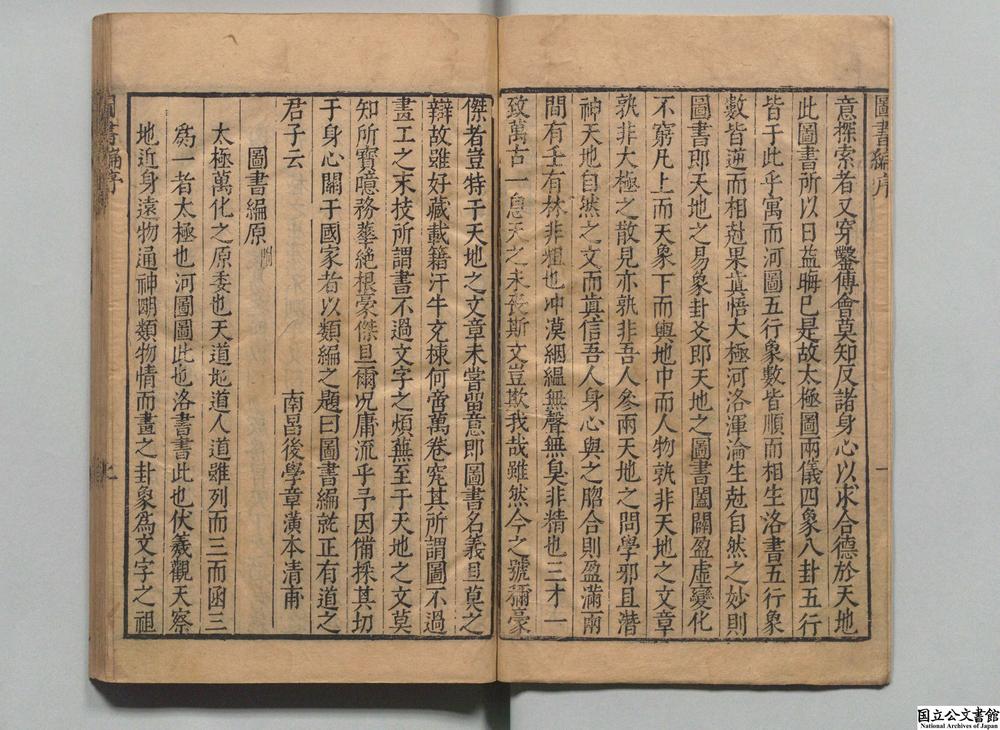 圖書編序
意探索者又穿鑿傳會莫知反諸身心以求合德於天地
此圖書所以日益晦已是故太極圖兩儀四象八卦五行
皆于此乎寓而河圖五行象數皆順而相生洛書五行象
數皆逆而相尅果眞悟太極河洛渾淪生尅自然之妙則
圖書即天地之易象卦爻即天地之圖書闔闢盈虛變化
不窮凡上而天象下而輿地中而人物孰非天地之文章
孰非大極之散見亦孰非吾人參兩天地之問學邪且潛
神天地自然之文而眞信吾人身心與之脗合則盈滿兩
間有壬有林非粗也冲漠絪縕無聲無臭非精也三才一
致萬古一息天之未喪斯文豈欺我哉雖然今之號稱豪
傑者豈特于天地之文章未嘗留意即圖書名義且莫之
辯故雖好藏載籍汗牛充棟何啻萬卷究其所謂圖不過
畫工之末技所謂書不過文字之煩蕪至于天地之文莫
知所寶噫務華絶根豪傑且爾况庸流乎予因備採其切
于身心關于國家者以類編之題曰圖書編就正有道之
君子云
南昌後學章潢本清甫
圖書編原
太極萬化之原委也天道地道人道雖列而三而函三
爲一者太極也河圖圖此也洛書書此也伏羲觀天察
地近身遠物通神明類物情而畫之卦象爲文字之祖
圖書編序
国立公文書館
National Archives of Japan